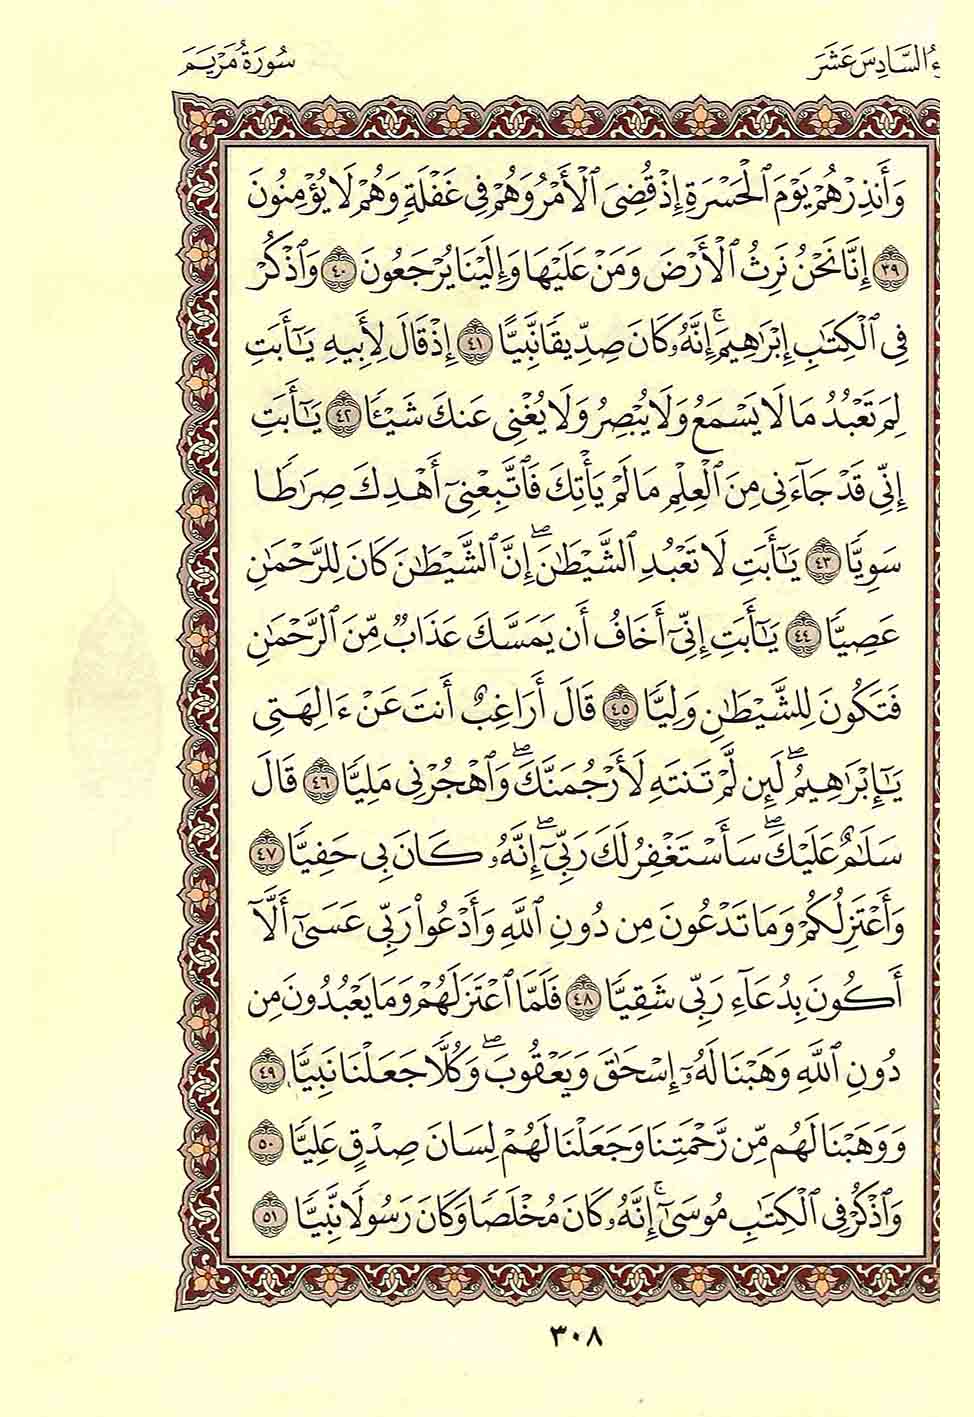 ءُ السَّادِسَ عَشَرَ
سُورَةُ مَرْيَمَ
وَأَنذِرْهُمْ يَوْمَ ٱلْحَسْرَةِ إِذْ قُضِىَ ٱلْأَمْرُ وَهُمْ فِى غَفْلَةٍ وَهُمْ لَا يُؤْمِنُونَ
٣٩ إِنَّا نَحْنُ نَرِثُ ٱلْأَرْضَ وَمَنْ عَلَيْهَا وَإِلَيْنَا يُرْجَعُونَ ٤٠ وَٱذْكُرْ
فِى ٱلْكِتَٰبِ إِبْرَٰهِيمَ ۚ إِنَّهُۥ كَانَ صِدِّيقًا نَّبِيًّا ٤١ إِذْ قَالَ لِأَبِيهِ يَٰٓأَبَتِ
لِمَ تَعْبُدُ مَا لَا يَسْمَعُ وَلَا يُبْصِرُ وَلَا يُغْنِى عَنكَ شَيْـًٔا ٤٢ يَٰٓأَبَتِ
إِنِّى قَدْ جَآءَنِى مِنَ ٱلْعِلْمِ مَا لَمْ يَأْتِكَ فَٱتَّبِعْنِىٓ أَهْدِكَ صِرَٰطًا
سَوِيًّا ٤٣ يَٰٓأَبَتِ لَا تَعْبُدِ ٱلشَّيْطَٰنَ ۖ إِنَّ ٱلشَّيْطَٰنَ كَانَ لِلرَّحْمَٰنِ
عَصِيًّا ٤٤ يَٰٓأَبَتِ إِنِّىٓ أَخَافُ أَن يَمَسَّكَ عَذَابٌ مِّنَ ٱلرَّحْمَٰنِ
فَتَكُونَ لِلشَّيْطَٰنِ وَلِيًّا ٤٥ قَالَ أَرَاغِبٌ أَنتَ عَنْ ءَالِهَتِى
يَٰٓإِبْرَٰهِيمُ ۖ لَئِن لَّمْ تَنتَهِ لَأَرْجُمَنَّكَ ۖ وَٱهْجُرْنِى مَلِيًّا ٤٦ قَالَ
سَلَٰمٌ عَلَيْكَ ۖ سَأَسْتَغْفِرُ لَكَ رَبِّىٓ ۖ إِنَّهُۥ كَانَ بِى حَفِيًّا ٤٧
وَأَعْتَزِلُكُمْ وَمَا تَدْعُونَ مِن دُونِ ٱللَّهِ وَأَدْعُوا۟ رَبِّى عَسَىٰٓ أَلَّآ
أَكُونَ بِدُعَآءِ رَبِّى شَقِيًّا ٤٨ فَلَمَّا ٱعْتَزَلَهُمْ وَمَا يَعْبُدُونَ مِن
دُونِ ٱللَّهِ وَهَبْنَا لَهُۥٓ إِسْحَٰقَ وَيَعْقُوبَ ۖ وَكُلًّا جَعَلْنَا نَبِيًّا ٤٩
وَوَهَبْنَا لَهُم مِّن رَّحْمَتِنَا وَجَعَلْنَا لَهُمْ لِسَانَ صِدْقٍ عَلِيًّا ٥٠
وَٱذْكُرْ فِى ٱلْكِتَٰبِ مُوسَىٰٓ ۚ إِنَّهُۥ كَانَ مُخْلَصًا وَكَانَ رَسُولًا نَّبِيًّا ٥١
٣٠٨